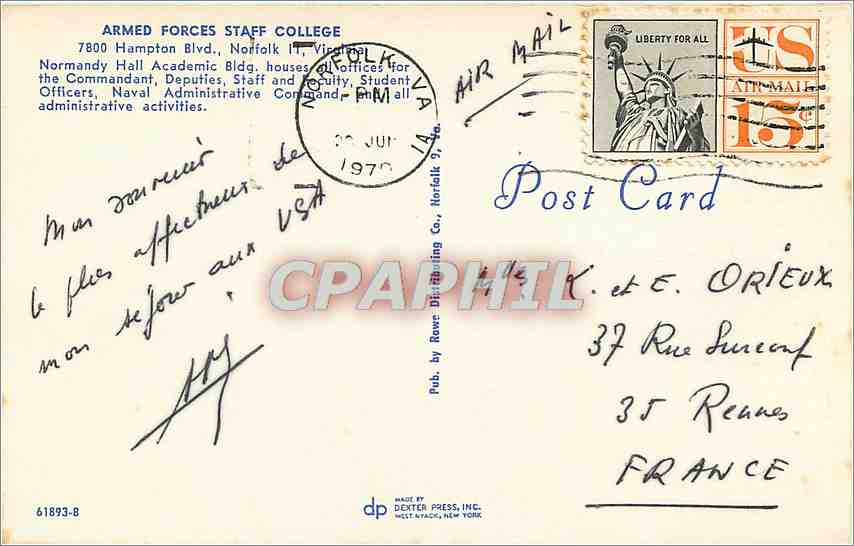 ARMED FORCES STAFF COLLEGE
7800 Hampton Blvd., Norfolk 11, Virginia
Normandy Hall Academic Bldg. houses all offices for
the Commandant, Deputies, Staff and Faculty, Student
Officers, Naval Administrative Command, and all
administrative activities.
NORFOLK VA
PM
JUN
1970
AIR MAIL
LIBERTY FOR ALL
US
AIR MAIL
15¢
Post Card
Mon souvenir
le plus affectueux de
mon séjour aux USA
Pub. by Rowe Distributing Co., Norfolk 9, Va.
CPAPHIL
Mlles K. et E. ORIEUX
37 Rue Surcouf
35 Rennes
FRANCE
61893-B
dp
MADE BY
DEXTER PRESS, INC.
WEST NYACK, NEW YORK